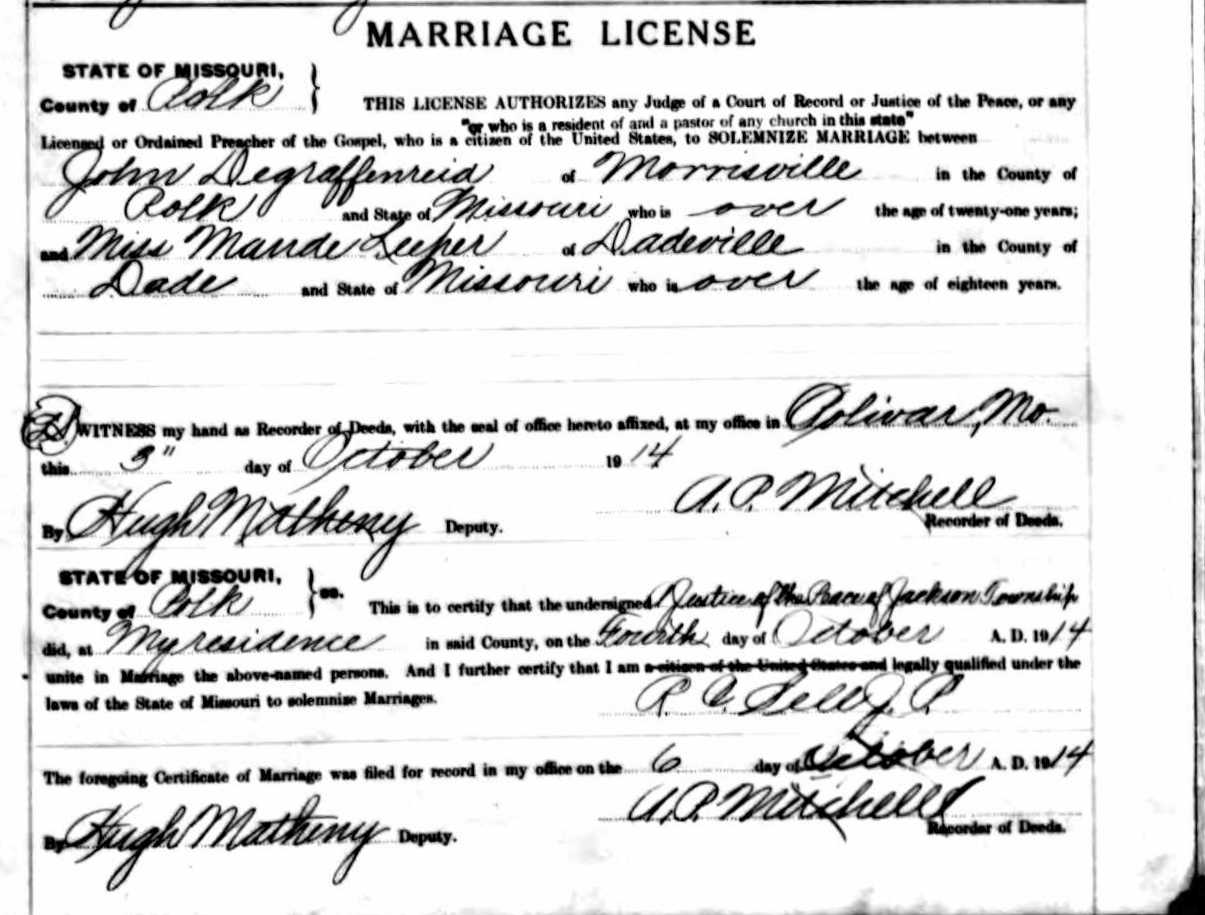 MARRIAGE LICENSE
STATE OF MISSOURI,
County of Polk
THIS LICENSE AUTHORIZES any Judge of a Court of Record or Justice of the Peace, or any
"or who is a resident of and a pastor of any church in this state"
Licensed or Ordained Preacher of the Gospel, who is a citizen of the United States, to SOLEMNIZE MARRIAGE between
John Degraffenreid of Morrisville in the County of
Polk and State of Missouri who is over the age of twenty-one years;
and Miss Maude Leeper of Dadeville in the County of
Dade and State of Missouri who is over the age of eighteen years.
WITNESS my hand as Recorder of Deeds, with the seal of office hereto affixed, at my office in Bolivar, Mo.
this 3" day of October 1914
A. P. Mitchell
By Hugh Matheny Deputy. Recorder of Deeds.
STATE OF MISSOURI,
County of Polk ss. This is to certify that the undersigned Justice of the Peace of Jackson Township
did, at My residence in said County, on the Fourth day of October A. D. 1914
unite in Marriage the above-named persons. And I further certify that I am a citizen of the United States and legally qualified under the
laws of the State of Missouri to solemnize Marriages.
J. P.
The foregoing Certificate of Marriage was filed for record in my office on the 6 day of October A. D. 1914
A. P. Mitchell
By Hugh Matheny Deputy. Recorder of Deeds.